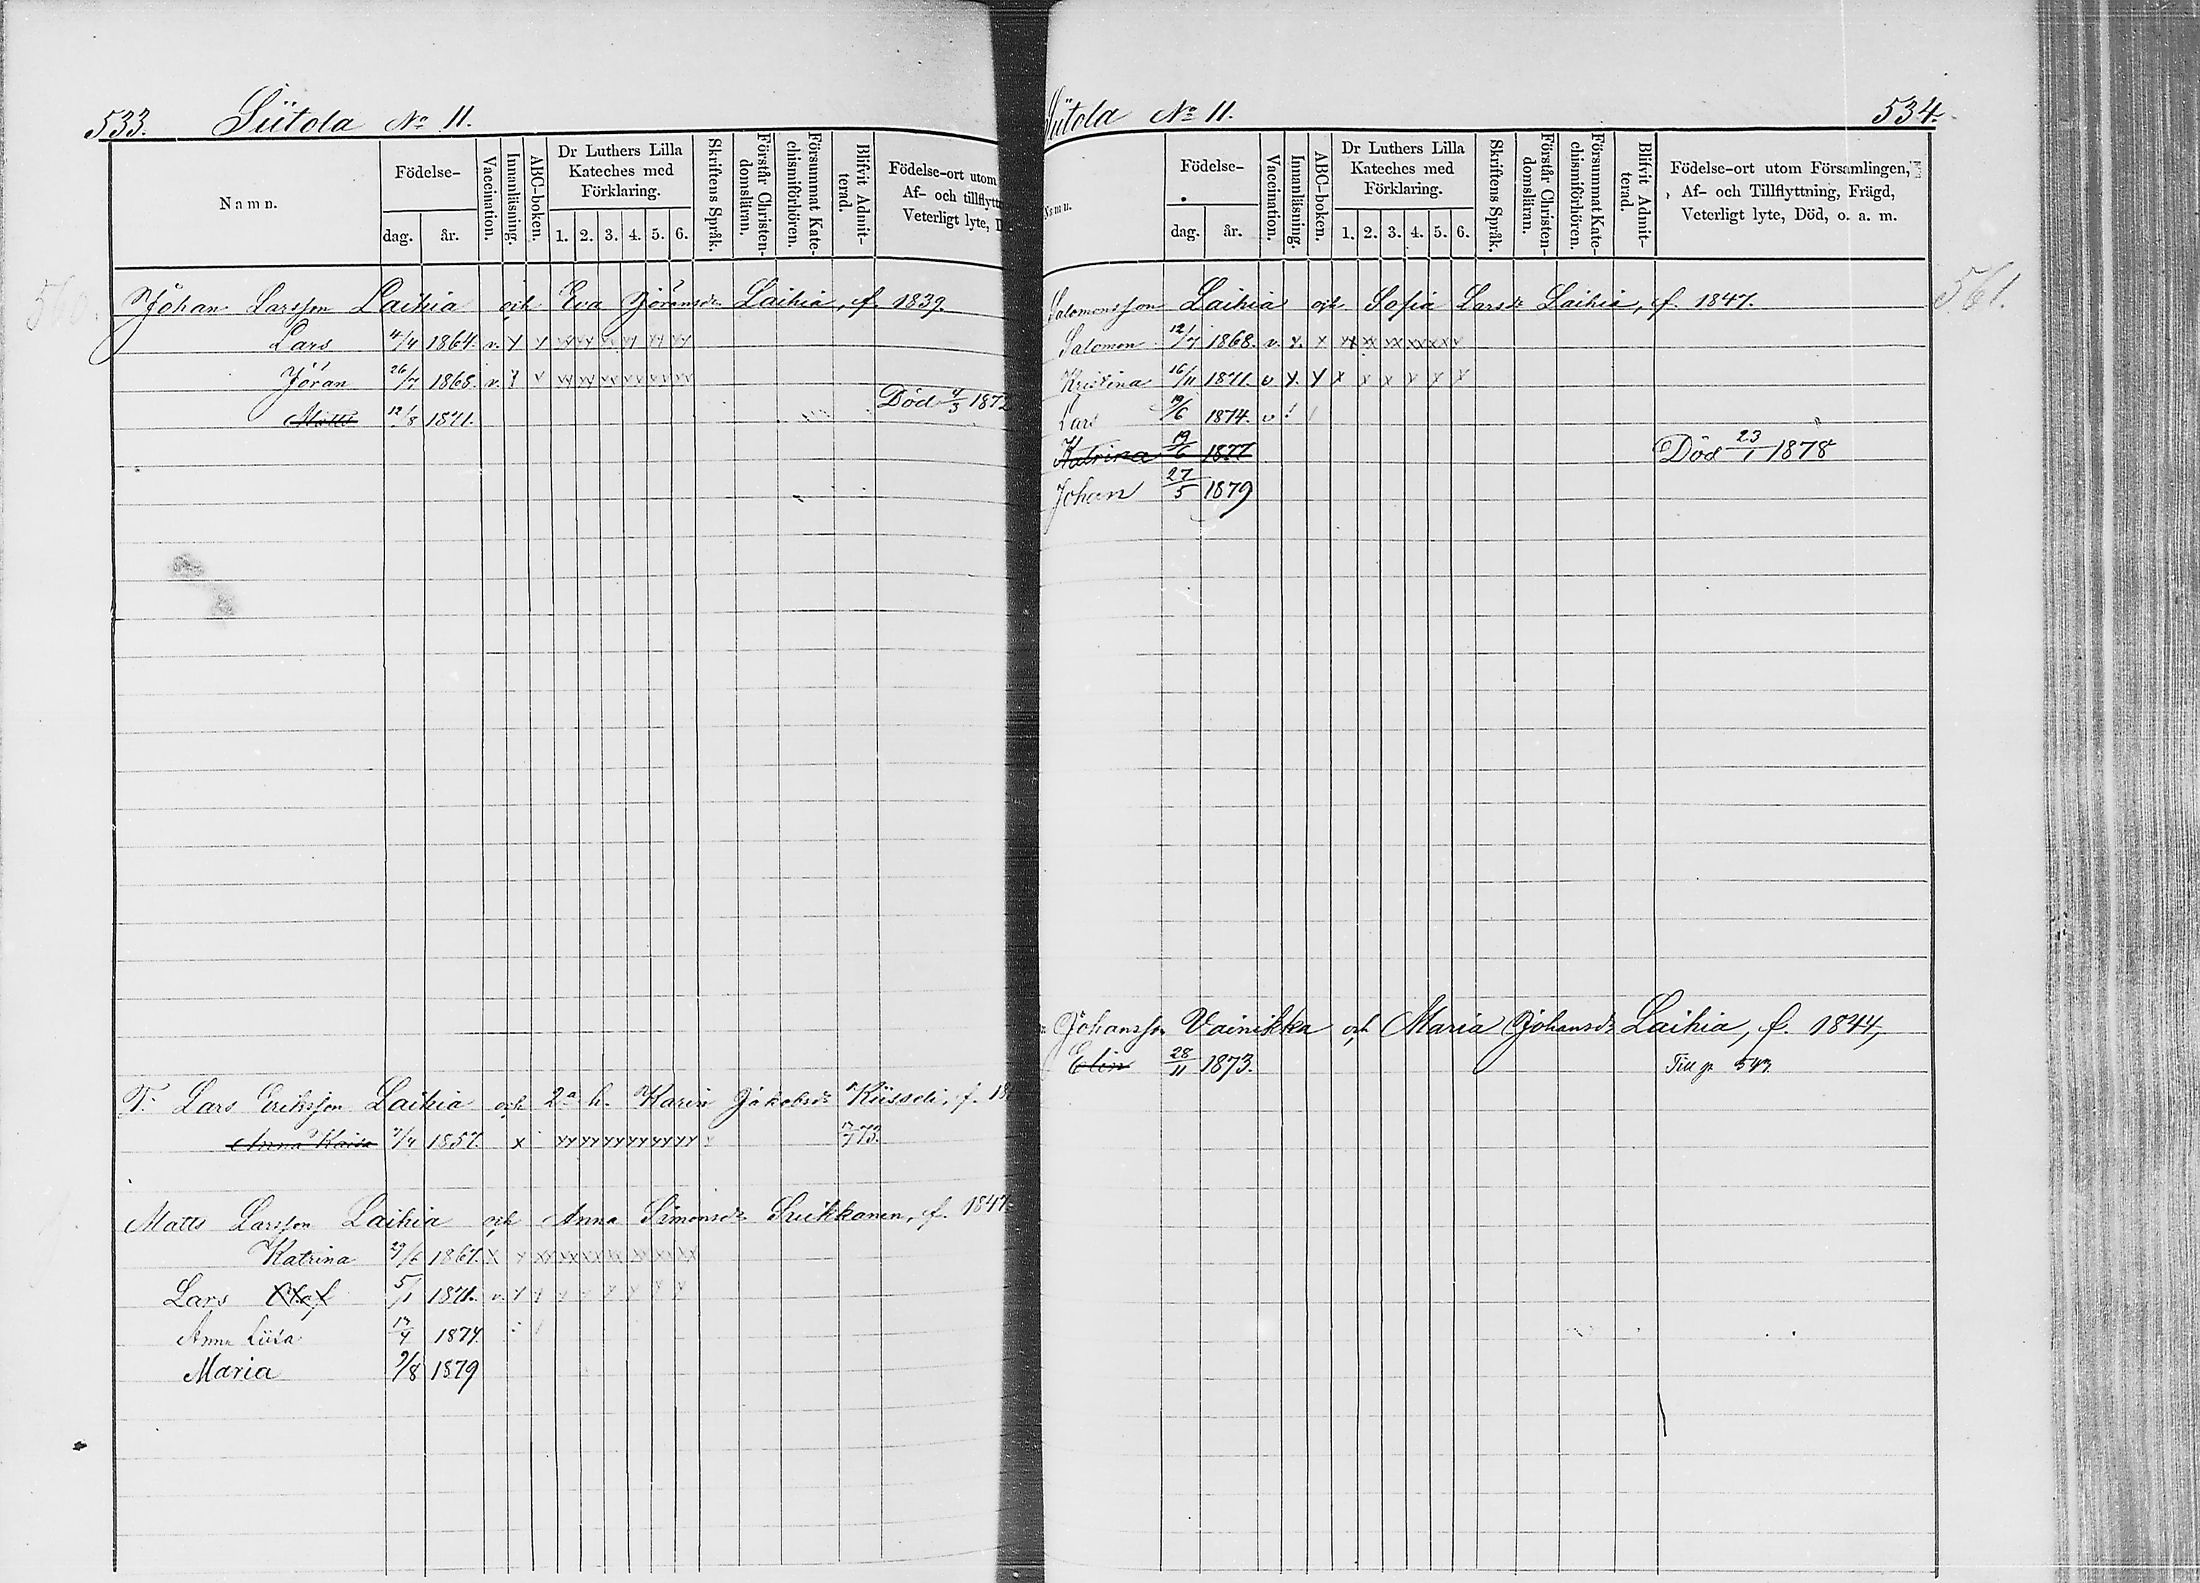 533. Siitola No 11.
Namn.
Födelse-
dag.
år.
Vaccination.
Innanläsning.
ABC-boken.
Dr Luthers Lilla
Kateches med
Förklaring.
1. 2. 3. 4. 5. 6.
Skriftens Språk.
Förstår Christen-
domsläran.
Försummat Kate-
chismiförhören.
Blifvit Admit-
terad.
Födelse-ort utom
Af- och tillflytt
Veterligt lyte, D
Johan Larsson Laihia och Eva Jöransdr Laihia, f. 1839.
Lars 4/4 1864. v. x x xx xx xx xx xx xx
Jöran 26/7 1868. v. x v xx xx xx xx xx xx
Matts 12/8 1871. Död 4/3 1872
T. Lars Eriksson Laihia och 2a h. Karin Jakobsdr Kiisseli, f. 18
Anna Kaisa 7/4 1857. x xx xx xx xx xx xx 73.
Matts Larsson Laihia och Anna Simonsdr Suikkanen, f. 1847.
Katrina 29/6 1867. x x xx xx xx xx xx xx xx
Lars Olof 5/1 1871. v. x x x x x x x x
Anna Liisa 17/4 1874.
Maria 9/8 1879
Siitola No 11. 534.
Namn.
Födelse-
dag.
år.
Vaccination.
Innanläsning.
ABC-boken.
Dr Luthers Lilla
Kateches med
Förklaring.
1. 2. 3. 4. 5. 6.
Skriftens Språk.
Förstår Christen-
domsläran.
Försummat Kate-
chismiförhören.
Blifvit Admit-
terad.
Födelse-ort utom Församlingen,
Af- och Tillflyttning, Frägd,
Veterligt lyte, Död, o. a. m.
Salomonsson Laihia och Sofia Larsdr Laihia, f. 1847. 561.
Salomon 12/7 1868. v. x. x xx xx xx xx xx x
Kristina 16/11 1871. v x. x x x x x x x
Lars 19/6 1874. v
Katrina 19/6 1877 Död 23/1 1878
Johan 27/5 1879
Johansson Vainikka och Maria Johansdr Laihia, f. 1844,
Elin 28/11 1873. Till p. 543